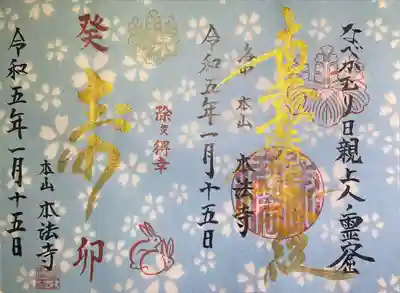 なべかむり日親上人霊窟
南無妙法蓮華経
本山 本法寺
令和五年一月十五日
癸
卯
除災得幸
本山 本法寺
令和五年一月十五日